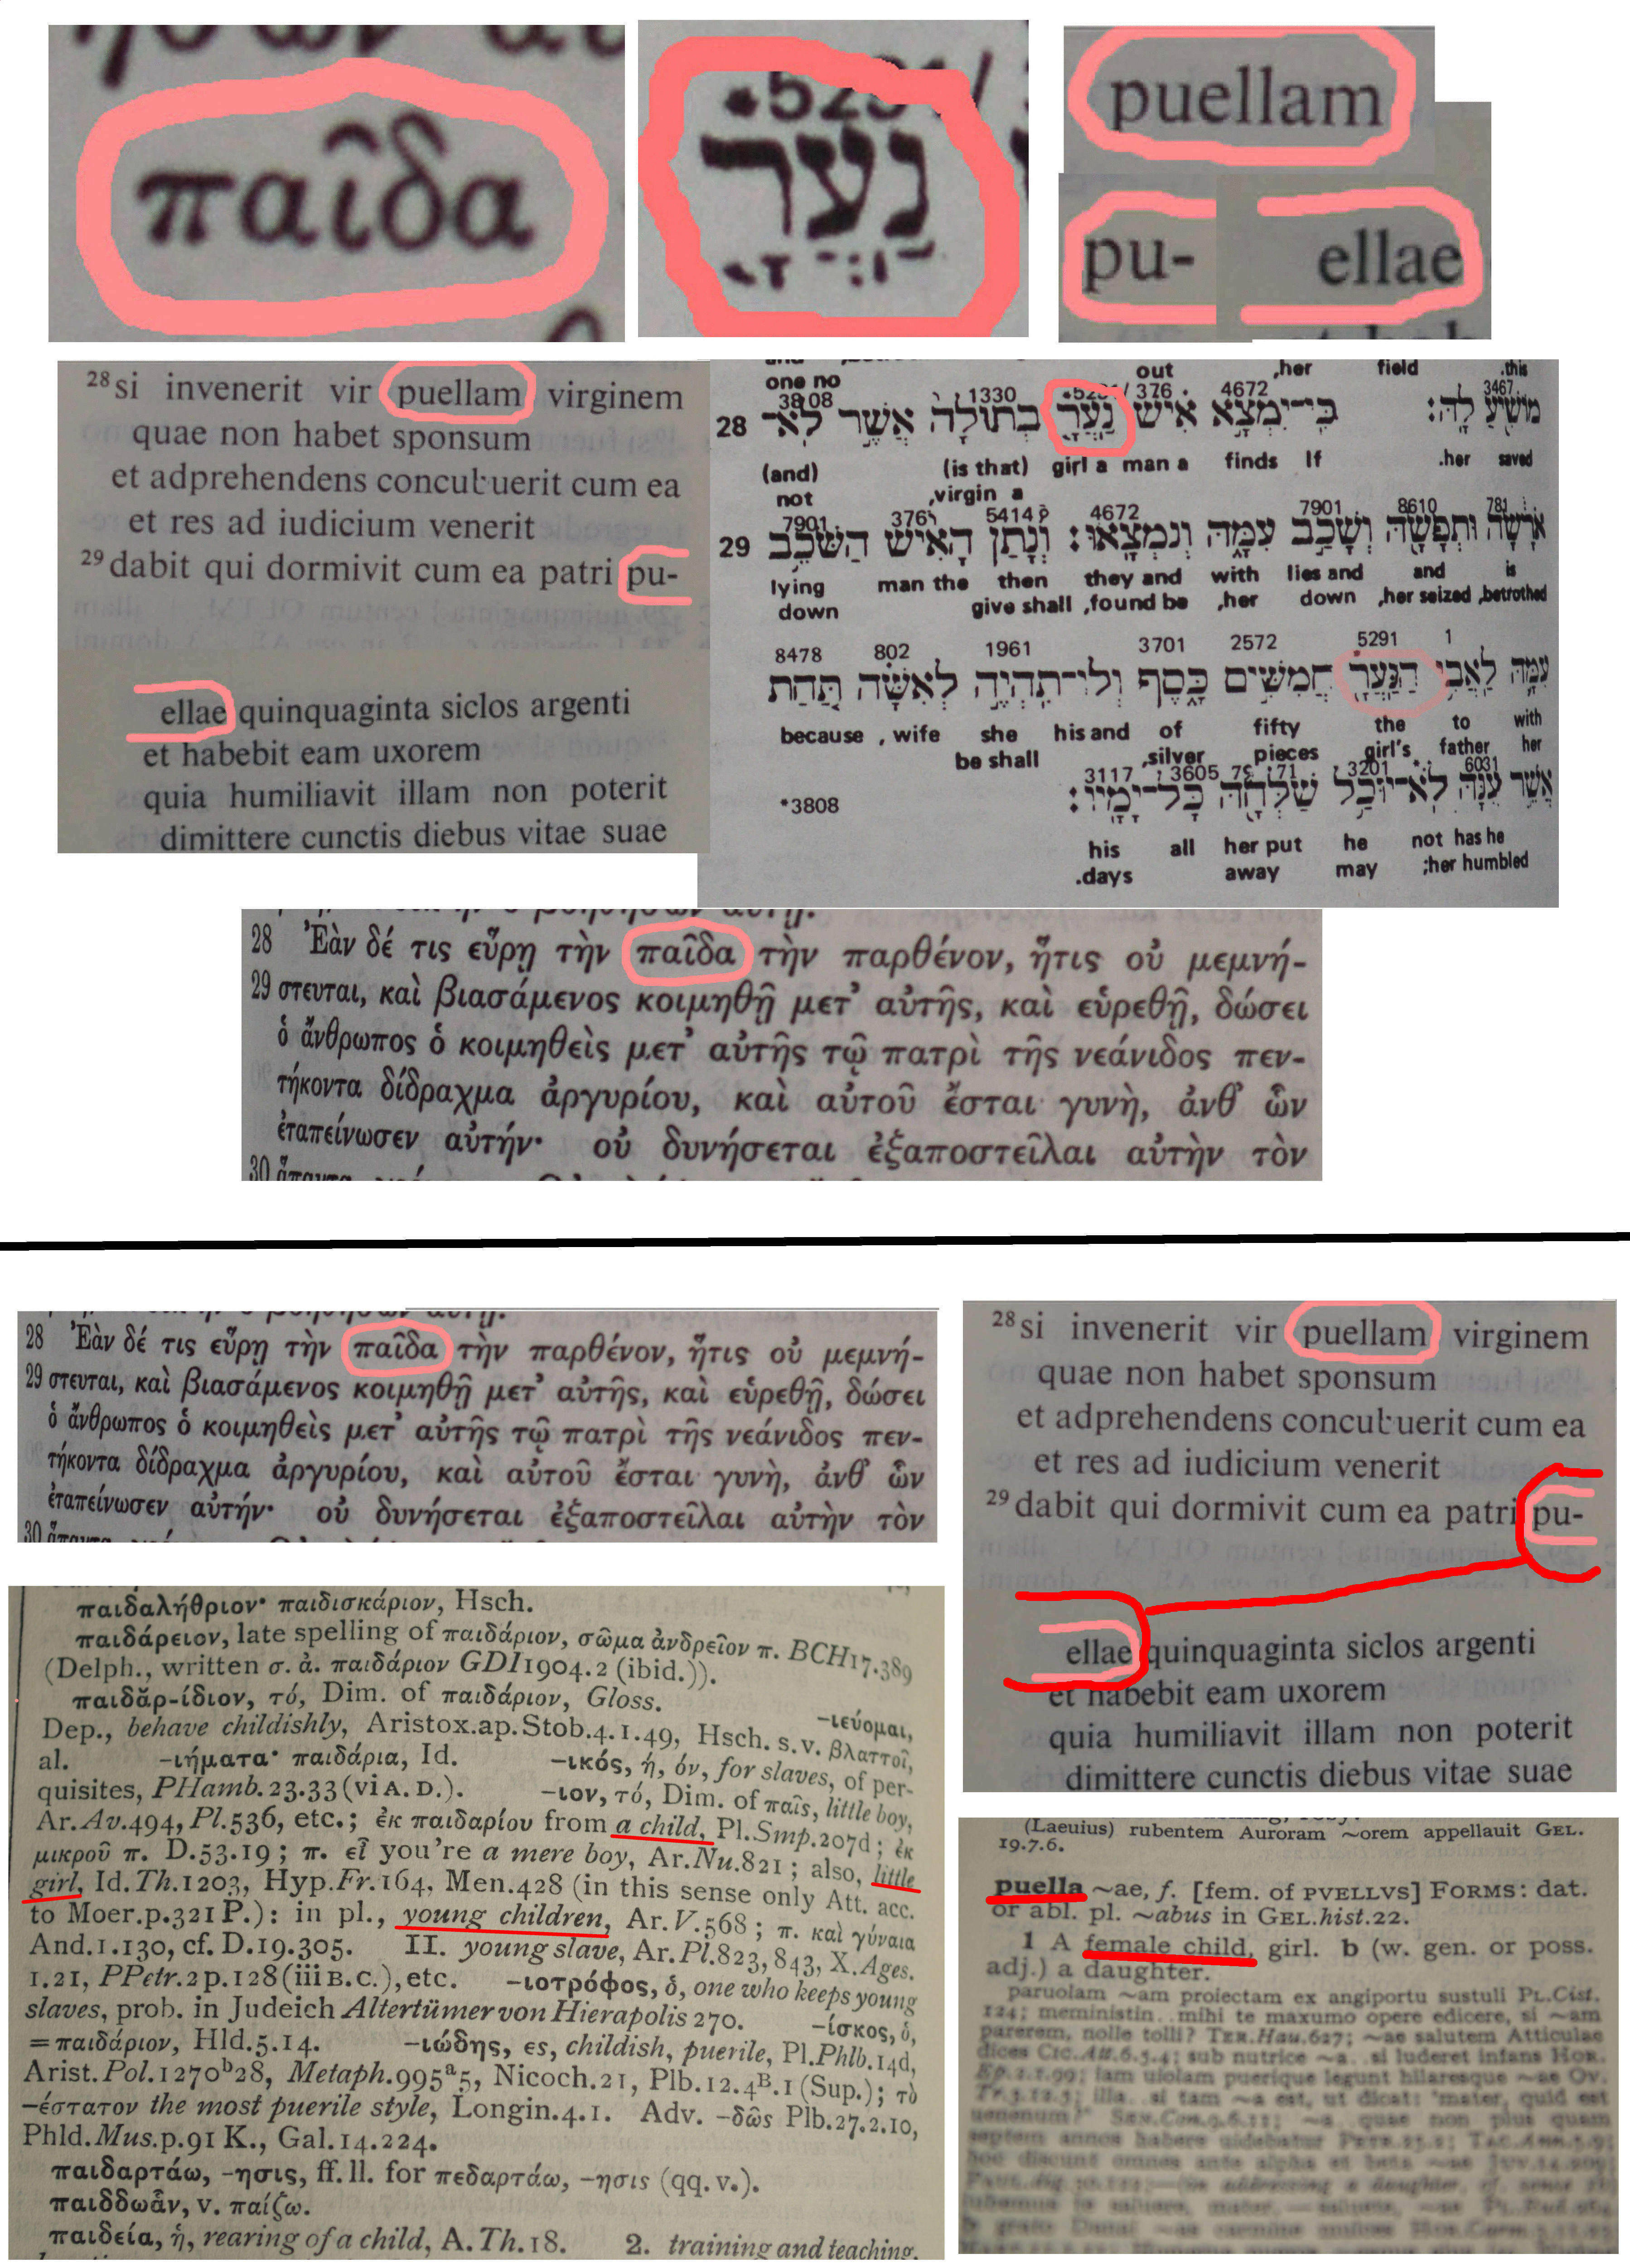 παῖδα
*5291/
נַעֲרָ
puellam
pu- ellae
28 si invenerit vir puellam virginem
quae non habet sponsum
et adprehendens concubuerit cum ea
et res ad iudicium venerit
29 dabit qui dormivit cum ea patri pu-
ellae quinquaginta siclos argenti
et habebit eam uxorem
quia humiliavit illam non poterit
dimittere cunctis diebus vitae suae
out ,her field .this
one no
3808 1330 376 4672 3467
28 מוֹשִׁיעַ לָהּ: כִּי־יִמְצָא אִישׁ נַעֲרָ בְתוּלָה אֲשֶׁר לֹא־
(and) (is that) girl a man a finds If .her saved
not ,virgin a
7901 376 5414 4672 7901 8610 781
29 אֹרָשָׂה וּתְפָשָׂהּ וְשָׁכַב עִמָּהּ וְנִמְצָאוּ: וְנָתַן הָאִישׁ הַשֹּׁכֵב
lying man the then they and with lies and and is
down give shall ,found be ,her down ,her seized ,betrothed
8478 802 1961 3701 2572 5291 1
עִמָּהּ לַאֲבִי הַנַּעֲרָ חֲמִשִּׁים כָּסֶף וְלוֹ־תִהְיֶה לְאִשָּׁה תַּחַת
because , wife she his and of fifty the to with
be shall ,silver pieces girl's father her
3117 3605 71 3201 6031
אֲשֶׁר עִנָּהּ לֹא־יוּכַל שַׁלְּחָהּ כָּל־יָמָיו:
*3808
his all her put he not has he
.days away may ;her humbled
28 Ἐὰν δέ τις εὕρῃ τὴν παῖδα τὴν παρθένον, ἥτις οὐ μεμνή-
29 στευται, καὶ βιασάμενος κοιμηθῇ μετ’ αὐτῆς, καὶ εὑρεθῇ, δώσει
ὁ ἄνθρωπος ὁ κοιμηθεὶς μετ’ αὐτῆς τῷ πατρὶ τῆς νεάνιδος πεν-
τήκοντα δίδραχμα ἀργυρίου, καὶ αὐτοῦ ἔσται γυνὴ, ἀνθ’ ὧν
ἐταπείνωσεν αὐτήν· οὐ δυνήσεται ἐξαποστεῖλαι αὐτὴν τὸν
30
28 Ἐὰν δέ τις εὕρῃ τὴν παῖδα τὴν παρθένον, ἥτις οὐ μεμνή-
29 στευται, καὶ βιασάμενος κοιμηθῇ μετ’ αὐτῆς, καὶ εὑρεθῇ, δώσει
ὁ ἄνθρωπος ὁ κοιμηθεὶς μετ’ αὐτῆς τῷ πατρὶ τῆς νεάνιδος πεν-
τήκοντα δίδραχμα ἀργυρίου, καὶ αὐτοῦ ἔσται γυνὴ, ἀνθ’ ὧν
ἐταπείνωσεν αὐτήν· οὐ δυνήσεται ἐξαποστεῖλαι αὐτὴν τὸν
30
28 si invenerit vir puellam virginem
quae non habet sponsum
et adprehendens concubuerit cum ea
et res ad iudicium venerit
29 dabit qui dormivit cum ea patri pu-
ellae quinquaginta siclos argenti
et habebit eam uxorem
quia humiliavit illam non poterit
dimittere cunctis diebus vitae suae
παιδαλήθριον· παιδισκάριον, Hsch.
παιδάρειον, late spelling of παιδάριον, σῶμα ἀνδρεῖον π. BCH17.389
(Delph., written σ. ἀ. παιδάριον GDI1904.2 (ibid.)).
παιδᾰρ-ίδιον, τό, Dim. of παιδάριον, Gloss. -ιεύομαι,
Dep., behave childishly, Aristox.ap.Stob.4.1.49, Hsch. s.v. βλαττοῖ,
al. -ιήματα· παιδάρια, Id. -ικός, ή, όν, for slaves, of per-
quisites, PHamb.23.33 (vi A.D.). -ιον, τό, Dim. of παῖς, little boy,
Ar.Av.494, Pl.536, etc.; ἐκ παιδαρίου from a child, Pl.Smp.207d; ἐκ
μικροῦ π. D.53.19; π. εἶ you're a mere boy, Ar.Nu.821; also, little
girl, Id.Th.1203, Hyp.Fr.164, Men.428 (in this sense only Att. acc.
to Moer.p.321P.): in pl., young children, Ar.V.568; π. καὶ γύναια
And.1.130, cf. D.19.305. II. young slave, Ar.Pl.823, 843, X.Ages.
1.21, PPetr.2p.128 (iii B.C.), etc. -ιοτρόφος, ὁ, one who keeps young
slaves, prob. in Judeich Altertümer von Hierapolis 270. -ίσκος, ὁ,
=παιδάριον, Hld.5.14. -ιώδης, ες, childish, puerile, Pl.Phlb.14d,
Arist.Pol.1270b28, Metaph.995a5, Nicoch.21, Plb.12.4B.1 (Sup.); τὸ
-έστατον the most puerile style, Longin.4.1. Adv. -δῶς Plb.27.2.10,
Phld.Mus.p.91 K., Gal.14.224.
παιδαρτάω, -ησις, ff.ll. for πεδαρτάω, -ησις (qq.v.).
παιδδωᾶν, v. παίζω.
παιδεία, ἡ, rearing of a child, A.Th.18. 2. training and teaching,
(Laeuius) rubentem Auroram ~orem appellauit GEL.
19.7.6.
puella ~ae, f. [fem. of PVELLVS] FORMS: dat.
or abl. pl. ~abus in GEL.hist.22.
1 A female child, girl. b (w. gen. or poss.
adj.) a daughter.
paruolam ~am proiectam ex angiportu sustuli PL.Cist.
124; meministin.. mihi te maxumo opere edicere, si ~am
parerem, nolle tolli? TER.Hau.627; ~ae salutem Atticulae
dices CIC.Att.6.5.4; sub nutrice ~a. si luderet infans HOR.